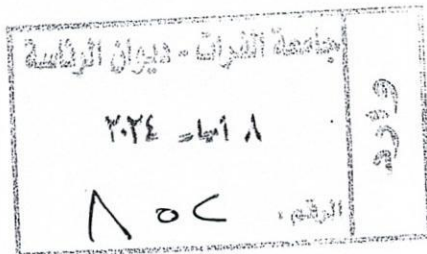 جامعة الفرات - ديوان الرئاسة
وارد
٨ أيار ٢٠٢٤
الرقم: ٨٥٢